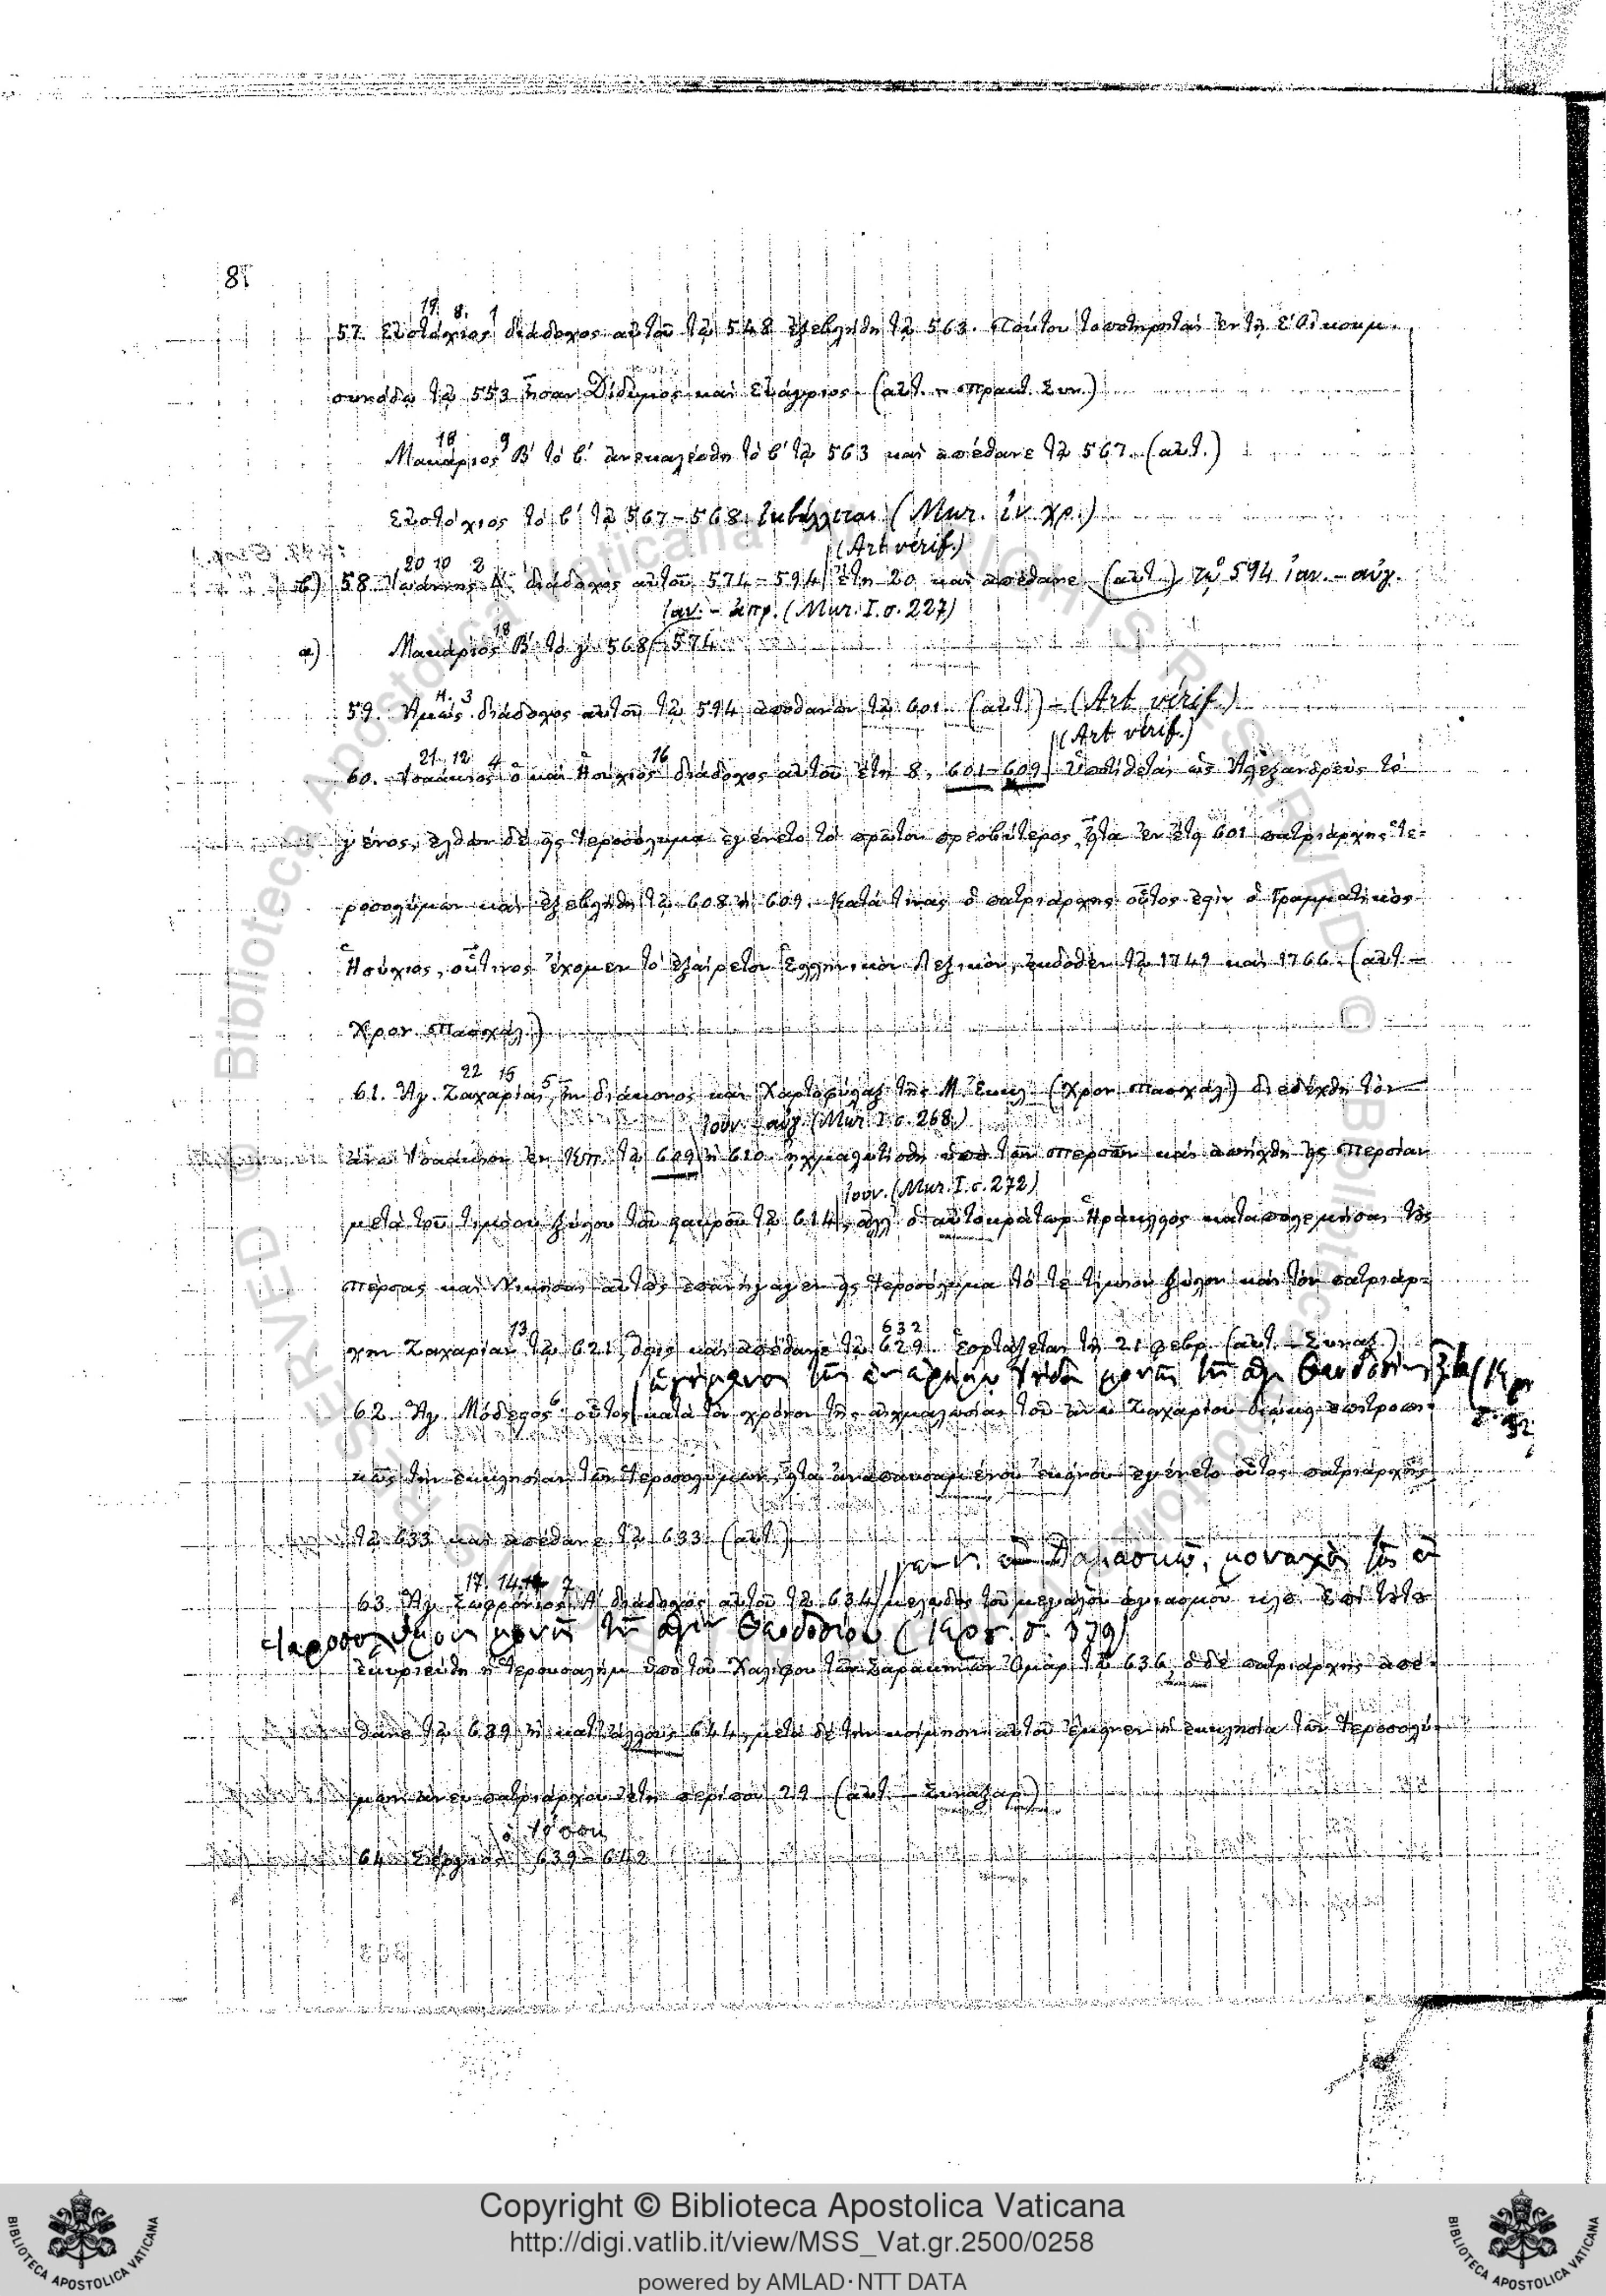 81
19. 8. 1
57. Εὐστόχιος διάδοχος αὐτοῦ τῷ 548 ἐξεβλήθη τῷ 563. Τούτου τοποτηρηταὶ ἐν τῇ Ε΄ Οἰκουμ.
συνόδῳ τῷ 553 ἦσαν Δίδυμος καὶ Εὐάγριος. (αὐτ. – πρακτ. Συν.)
18 9
Μακάριος Β΄ τὸ β΄ ἀνεκλήθη τὸ β΄ τῷ 563 καὶ ἀπέθανε τῷ 567. (αὐτ.)
Εὐστόχιος τὸ β΄ τῷ 567–568 ἐκβάλλεται (Mur. ἐν χρ.)
(Art vérif.)
20 10 2
β) 58. Ἰωάννης Δ΄ διάδοχος αὐτοῦ 574–594 ἔτη 20 καὶ ἀπέθανε (αὐτ.) τῷ 594 ἰαν. – αὐγ.
ἰαν. – ἀπρ. (Mur. I. σ. 227)
18
α) Μακάριος Β΄ τὸ γ΄ 568–574
11. 3
59. Ἀμὼς διάδοχος αὐτοῦ τῷ 594 ἀποθανὼν τῷ 601. (αὐτ.) – (Art vérif.)
(Art vérif.)
21. 12 4 16
60. Ἰσαάκιος ὁ καὶ Ἡσύχιος διάδοχος αὐτοῦ ἔτη 8, 601–609 ὑποτίθεται ὡς Ἀλεξανδρεὺς τὸ
γένος, ἐλθὼν δὲ εἰς Ἱεροσόλυμα ἐγένετο τὸ πρῶτον πρεσβύτερος, εἶτα ἐν ἔτει 601 πατριάρχης Ἱε-
ροσολύμων καὶ ἐξεβλήθη τῷ 608 ἢ 609. Κατά τινας ὁ πατριάρχης οὗτος ἐστὶν ὁ Γραμματικὸς
Ἡσύχιος, οὗτινος ἔχομεν τὸ ἐξαίρετον Ἑλληνικὸν Λεξικόν, ἐκδοθὲν τῷ 1749 καὶ 1766. (αὐτ. –
Χρον. Πασχάλ.)
22 15 5
61. Ἁγ. Ζαχαρίας, ἦν διάκονος καὶ Χαρτοφύλαξ τῆς Μ. Ἐκκλ. (Χρον. πασχάλ.) διεδέχθη τὸν
ἰουν. – αὐγ. (Mur. I. σ. 268)
ἄνω Ἰσαάκιον ἐν Κπ. τῷ 609 ἢ 610. ᾐχμαλωτίσθη ὑπὸ τῶν Περσῶν καὶ ἀπήχθη εἰς Περσίαν
ἰουν. (Mur. I. σ. 272)
μετὰ τοῦ τιμίου ξύλου τοῦ σταυροῦ τῷ 614, ἀλλ' ὁ αὐτοκράτωρ Ἡράκλειος καταπολεμήσας τοὺς
Πέρσας καὶ νικήσας αὐτοὺς ἐπανήγαγεν εἰς Ἱεροσόλυμα τό τε τίμιον ξύλον καὶ τὸν πατριάρ-
13 632
χην Ζαχαρίαν τῷ 621, ὅστις καὶ ἀπέθανε τῷ 629. ἑορτάζεται τῇ 21 φεβρ. (αὐτ. – Συναξ.)
62. Ἁγ. Μόδεστος οὗτος κατὰ τὸν χρόνον τῆς αἰχμαλωσίας τοῦ ἄνω Ζαχαρίου διῴκησε ἐπιτροπι-
κῶς τὴν ἐκκλησίαν τῶν Ἱεροσολύμων, εἶτα ἀναπαυσαμένου ἐκείνου ἐγένετο οὗτος πατριάρχης
τῷ 633 καὶ ἀπέθανε τῷ 633. (αὐτ.)
Δαμασκῷ, μοναχὸς
17. 14. 7
63. Ἁγ. Σωφρόνιος Α΄ διάδοχος αὐτοῦ τῷ 634 μελῳδὸς τοῦ μεγάλου ἁγιασμοῦ κλπ. Ἐπὶ τούτου
μονῆς τοῦ ἁγίου Θεοδοσίου ( σ. 379)
ἐκυριεύθη ἡ Ἱερουσαλὴμ ὑπὸ τοῦ Χαλίφου τῶν Σαρακηνῶν Ὀμὰρ τῷ 636, ὁ δὲ πατριάρχης ἀπέ-
θανε τῷ 639 ἢ κατ' ἄλλους 644, μετὰ δὲ τὴν κοίμησιν αὐτοῦ ἔμεινεν ἡ ἐκκλησία τῶν Ἱεροσολύ-
μων ἄνευ πατριάρχου ἔτη περίπου 29 (αὐτ. – Συναξαρ.)
64. Σέργιος 639–642
Copyright © Biblioteca Apostolica Vaticana
http://digi.vatlib.it/view/MSS_Vat.gr.2500/0258
powered by AMLAD·NTT DATA